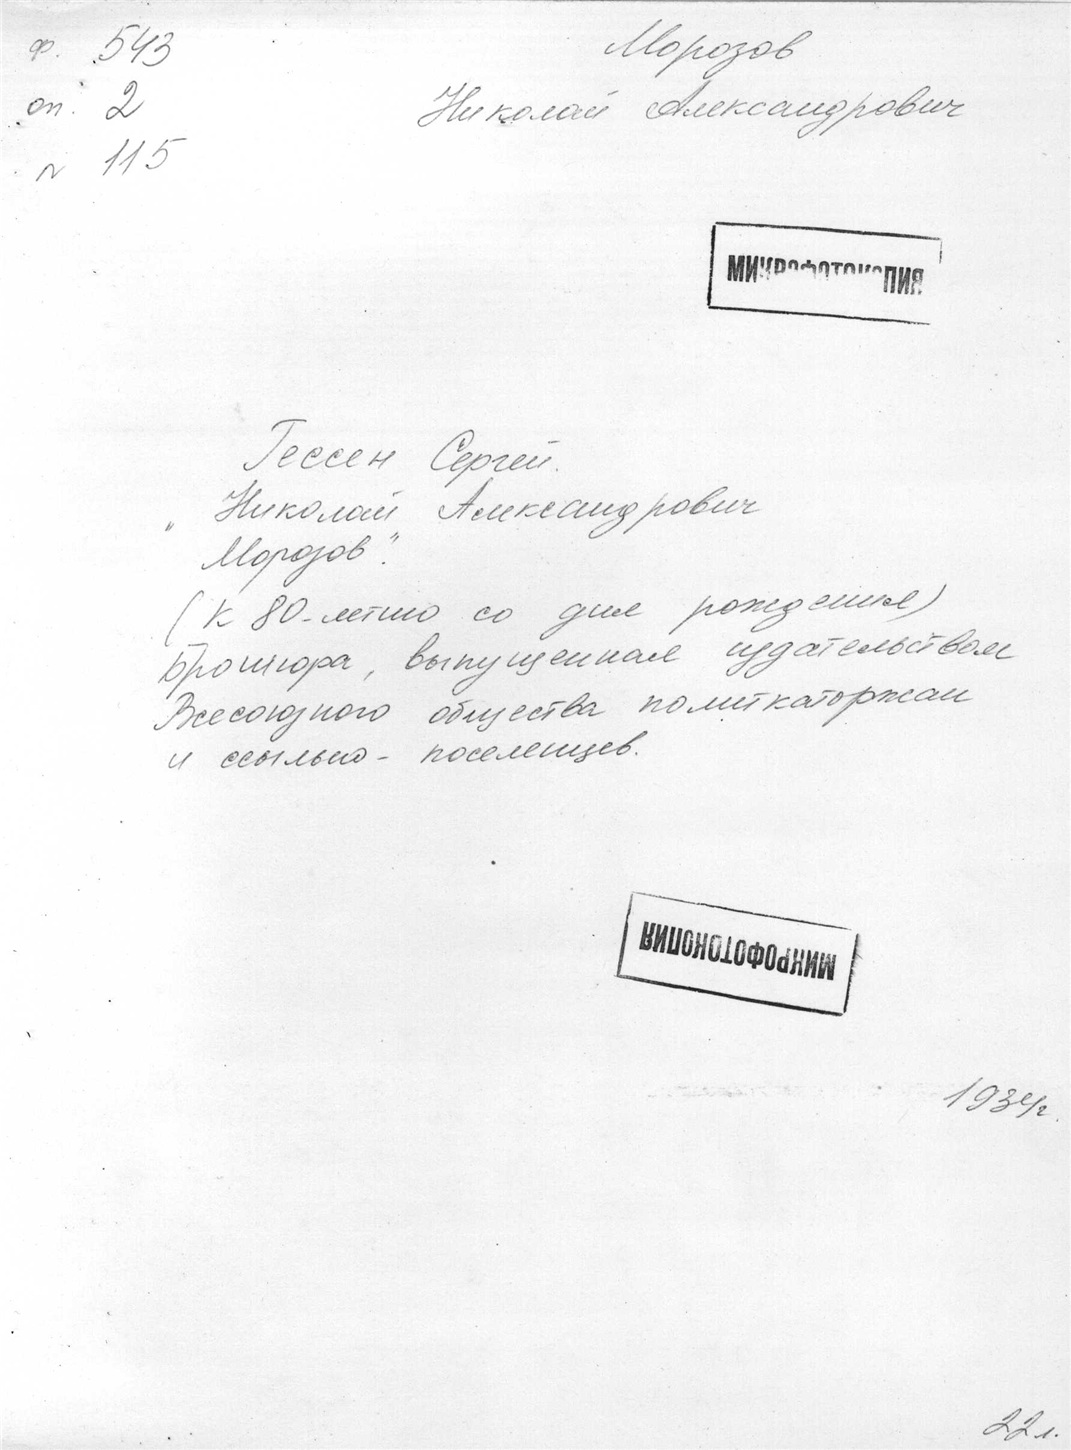 ф. 543
оп. 2
№ 115
Морозов
Николай Александрович
МИКРОФОТОКОПИЯ
Гессен Сергей.
„Николай Александрович
Морозов".
(к 80-летию со дня рождения)
Брошюра, выпущенная издательством
Всесоюзного общества политкаторжан
и ссыльно-поселенцев.
МИКРОФОТОКОПИЯ
1934г.
22л.